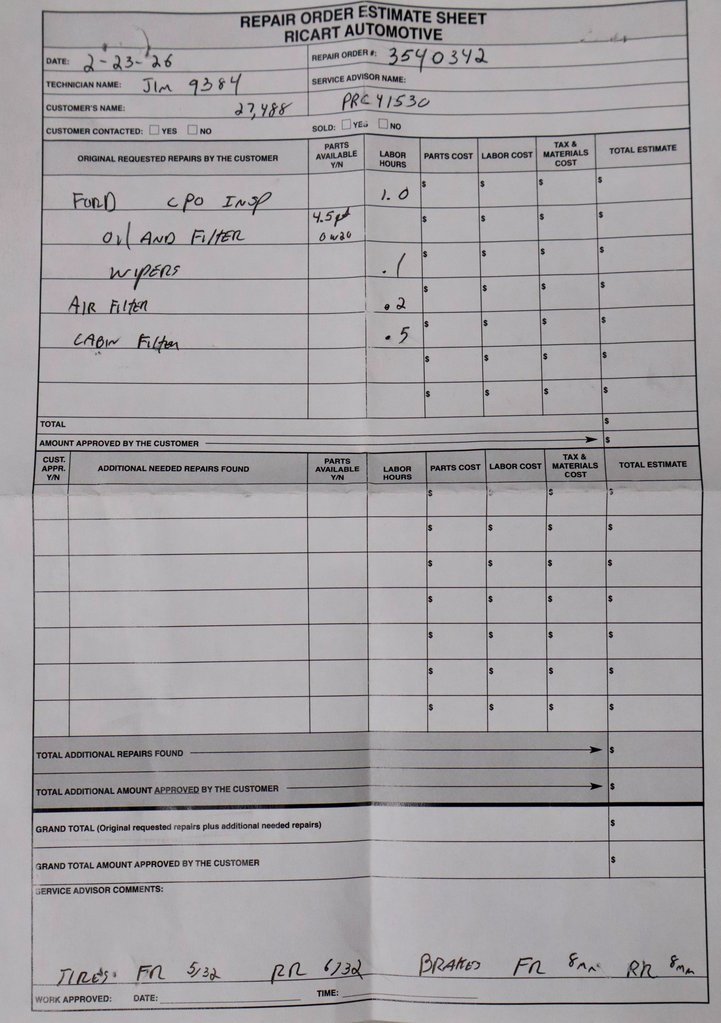 REPAIR ORDER ESTIMATE SHEET
RICART AUTOMOTIVE
DATE: 2-23-26 REPAIR ORDER #: 3540342
TECHNICIAN NAME: JIM 9384 SERVICE ADVISOR NAME:
CUSTOMER'S NAME: 27,488 PRC41530
CUSTOMER CONTACTED: ☐ YES ☐ NO SOLD: ☐ YES ☐ NO
ORIGINAL REQUESTED REPAIRS BY THE CUSTOMER PARTS AVAILABLE Y/N LABOR HOURS PARTS COST LABOR COST TAX & MATERIALS COST TOTAL ESTIMATE
FORD CPO INSP 1.0 $ $ $ $
OIL AND FILTER 4.5 pt 0W20 $ $ $ $
WIPERS .1 $ $ $ $
AIR FILTER .2 $ $ $ $
CABIN FILTER .5 $ $ $ $
$ $ $ $
$ $ $ $
TOTAL $
AMOUNT APPROVED BY THE CUSTOMER $
CUST. APPR. Y/N ADDITIONAL NEEDED REPAIRS FOUND PARTS AVAILABLE Y/N LABOR HOURS PARTS COST LABOR COST TAX & MATERIALS COST TOTAL ESTIMATE
$ $ $ $
$ $ $ $
$ $ $ $
$ $ $ $
$ $ $ $
$ $ $ $
$ $ $ $
TOTAL ADDITIONAL REPAIRS FOUND $
TOTAL ADDITIONAL AMOUNT APPROVED BY THE CUSTOMER $
GRAND TOTAL (Original requested repairs plus additional needed repairs) $
GRAND TOTAL AMOUNT APPROVED BY THE CUSTOMER $
SERVICE ADVISOR COMMENTS:
TIRES: FR 5/32 RR 6/32 BRAKES FR 8mm RR 8mm
WORK APPROVED: DATE: TIME: